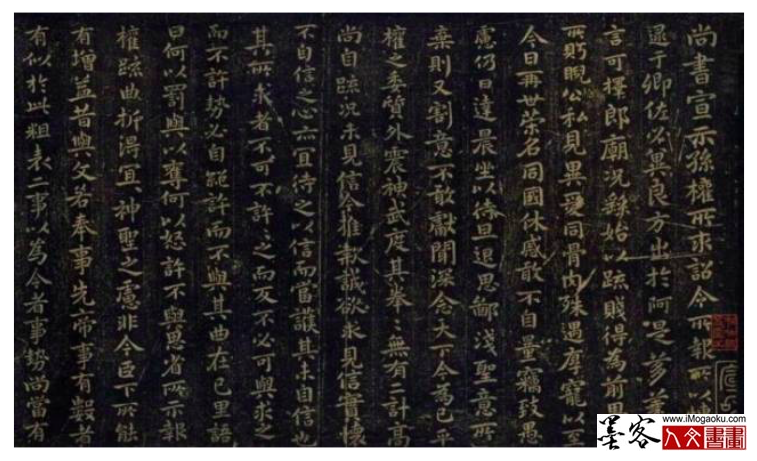 尚書宣示孫權所求詔令所報所以
逮于卿佐必冀良方出於阿是芻蕘
言可擇郎廟況繇始以疏賤得為前恩
所眄睨公私見異愛同骨肉殊遇厚寵以至
今日再世榮名同國休慼敢不自量竊致愚
慮仍日達晨坐以待旦退思鄙淺聖意所
棄則又割意不敢獻聞深念天下今為已平
權之委質外震神武度其拳〻無有二計高
尚自疏況未見信今推款誠欲求見信實懷
不自信之心亦宜待之以信而當護其未自信也
其所求者不可不許〻之而反不必可與求之
而不許勢必自絕許而不與其曲在己里語
曰何以罰與以奪何以怒許不與思省所示報
權疏曲折得宜〻神聖之慮非今臣下所能
有增益昔與文若奉事先帝事有數者
有似於此粗表二事以為今者事勢尚當有
墨客
www.iMogaoku.com
人文書畫